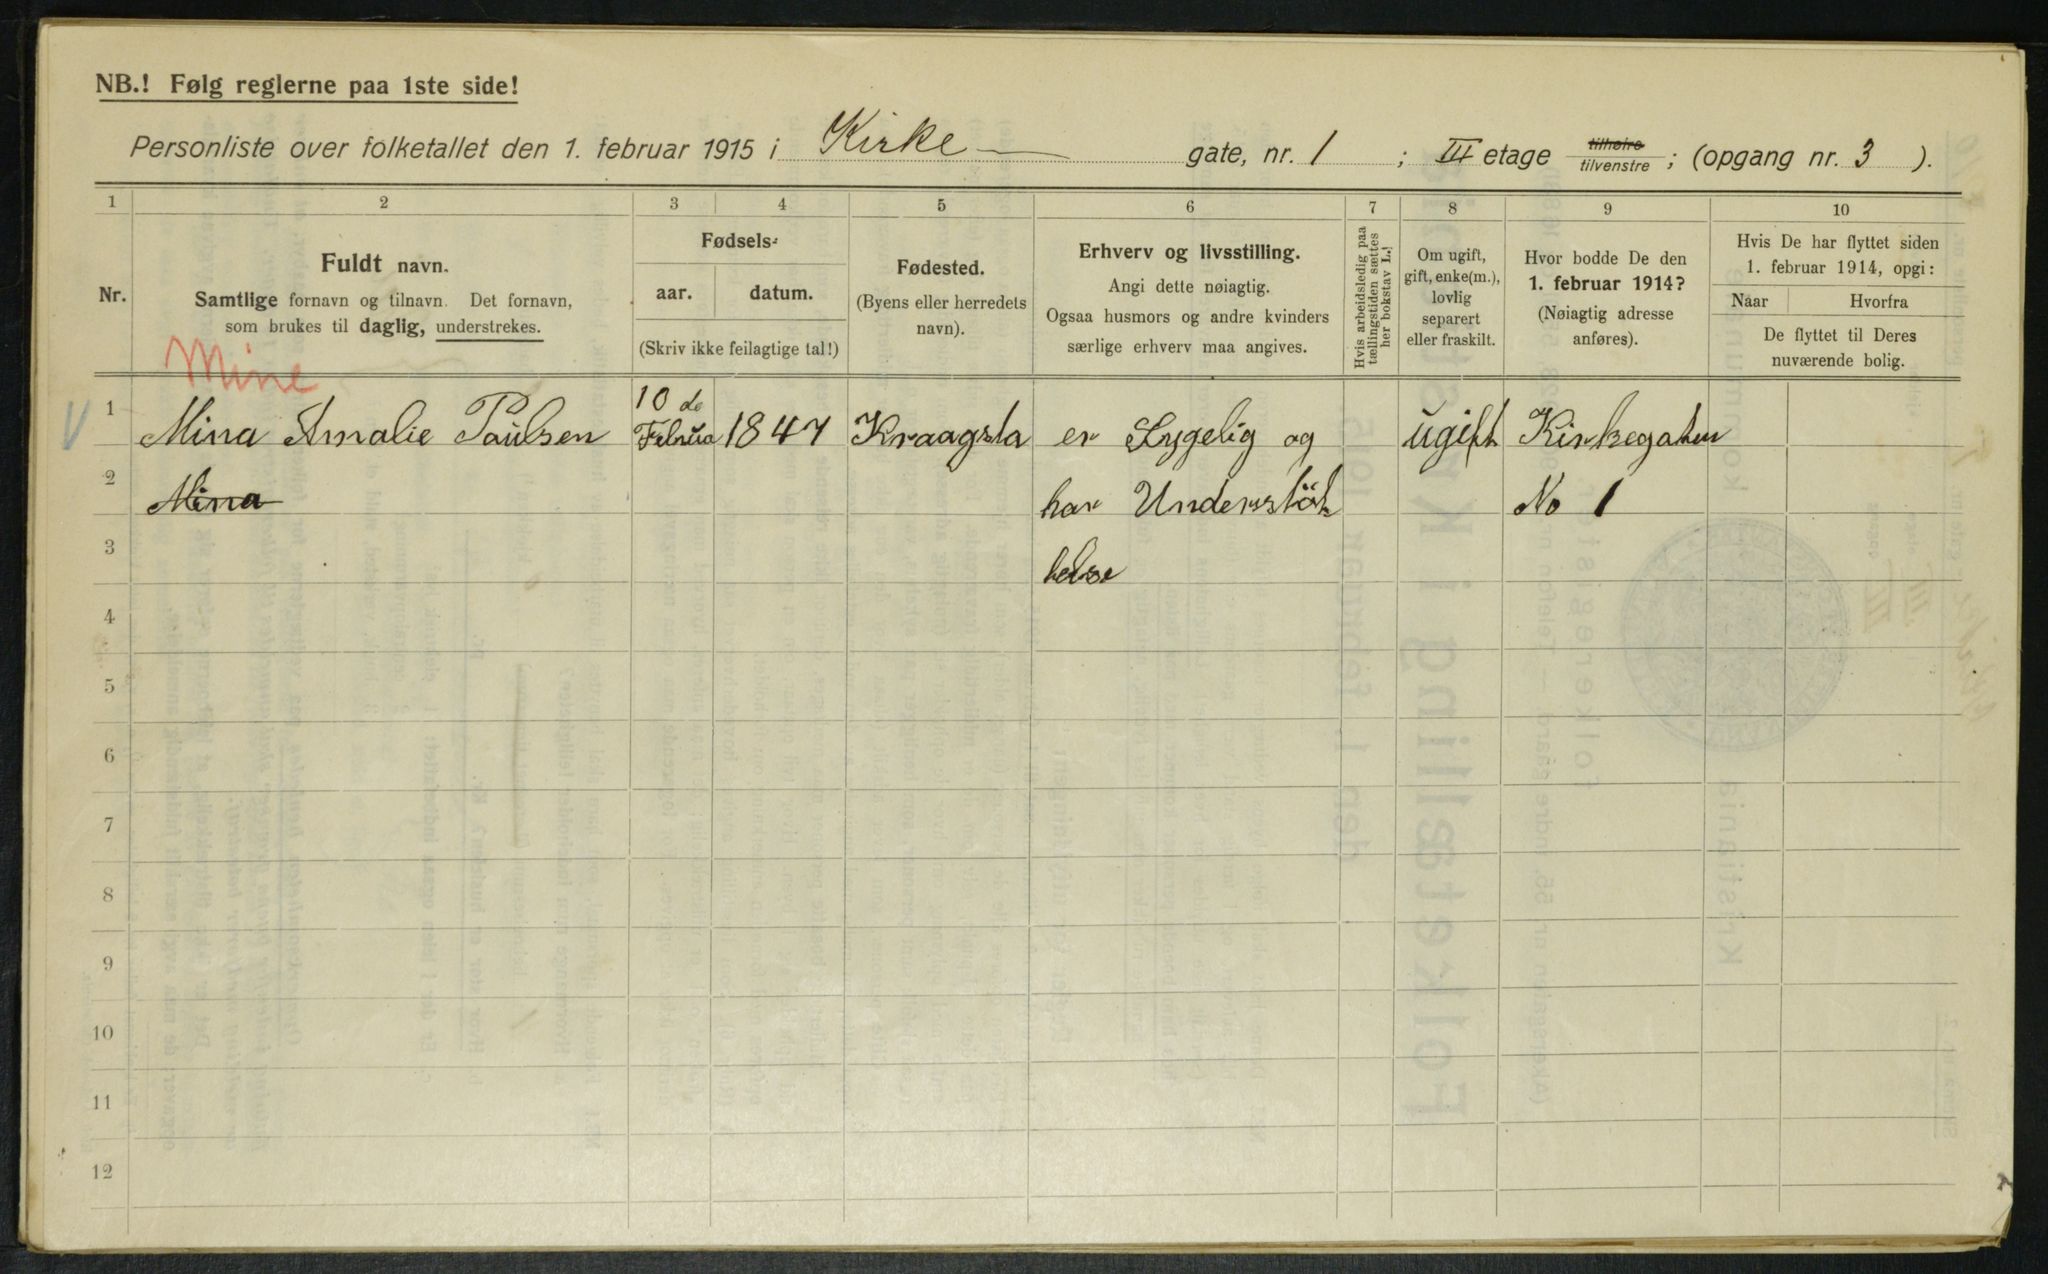 NB.! Følg reglerne paa 1ste side!
Personliste over folketallet den 1. februar 1915 i Kirke gate, nr. 1 ; III etage tilhøire tilvenstre ; (opgang nr. 3 ).
1 2 3 4 5 6 7 8 9 10
Nr.
Fuldt navn.
Samtlige fornavn og tilnavn. Det fornavn,
som brukes til daglig, understrekes.
Fødsels-
aar. datum.
(Skriv ikke feilagtige tal!)
Fødested.
(Byens eller herredets
navn).
Erhverv og livsstilling.
Angi dette nøiagtig.
Ogsaa husmors og andre kvinders
særlige erhverv maa angives.
Hvis arbeidsledig paa
tællingstiden sættes
her bokstav L.!
Om ugift,
gift, enke(m.),
lovlig
separert
eller fraskilt.
Hvor bodde De den
1. februar 1914?
(Nøiagtig adresse
anføres).
Hvis De har flyttet siden
1. februar 1914, opgi:
Naar Hvorfra
De flyttet til Deres
nuværende bolig.
Mine
1 Mina Amalie Paulsen 10 de Februa 1847 Kraagsta er Sygelig og ugift Kirkegaten
2 Mina har Understök No 1
3 helse
4
5
6
7
8
9
10
11
12